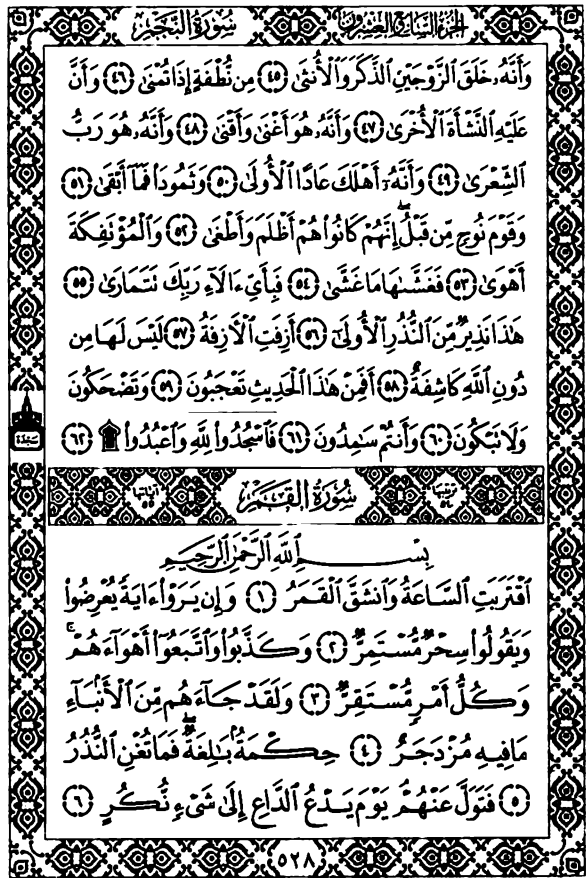 الجزء السابع والعشرون
سورة النجم
وَأَنَّهُۥ خَلَقَ ٱلزَّوْجَيْنِ ٱلذَّكَرَ وَٱلْأُنثَىٰ ٤٥ مِن نُّطْفَةٍ إِذَا تُمْنَىٰ ٤٦ وَأَنَّ
عَلَيْهِ ٱلنَّشْأَةَ ٱلْأُخْرَىٰ ٤٧ وَأَنَّهُۥ هُوَ أَغْنَىٰ وَأَقْنَىٰ ٤٨ وَأَنَّهُۥ هُوَ رَبُّ
ٱلشِّعْرَىٰ ٤٩ وَأَنَّهُۥٓ أَهْلَكَ عَادًا ٱلْأُولَىٰ ٥٠ وَثَمُودَا۟ فَمَآ أَبْقَىٰ ٥١
وَقَوْمَ نُوحٍ مِّن قَبْلُ ۖ إِنَّهُمْ كَانُوا۟ هُمْ أَظْلَمَ وَأَطْغَىٰ ٥٢ وَٱلْمُؤْتَفِكَةَ
أَهْوَىٰ ٥٣ فَغَشَّىٰهَا مَا غَشَّىٰ ٥٤ فَبِأَىِّ ءَالَآءِ رَبِّكَ تَتَمَارَىٰ ٥٥
هَٰذَا نَذِيرٌ مِّنَ ٱلنُّذُرِ ٱلْأُولَىٰٓ ٥٦ أَزِفَتِ ٱلْءَازِفَةُ ٥٧ لَيْسَ لَهَا مِن
دُونِ ٱللَّهِ كَاشِفَةٌ ٥٨ أَفَمِنْ هَٰذَا ٱلْحَدِيثِ تَعْجَبُونَ ٥٩ وَتَضْحَكُونَ
وَلَا تَبْكُونَ ٦٠ وَأَنتُمْ سَٰمِدُونَ ٦١ فَٱسْجُدُوا۟ لِلَّهِ وَٱعْبُدُوا۟ ۩ ٦٢
سجدة
ترتيبها ٥٤
سورة القمر
آياتها ٥٥
بِسْمِ ٱللَّهِ ٱلرَّحْمَٰنِ ٱلرَّحِيمِ
ٱقْتَرَبَتِ ٱلسَّاعَةُ وَٱنشَقَّ ٱلْقَمَرُ ١ وَإِن يَرَوْا۟ ءَايَةً يُعْرِضُوا۟
وَيَقُولُوا۟ سِحْرٌ مُّسْتَمِرٌّ ٢ وَكَذَّبُوا۟ وَٱتَّبَعُوٓا۟ أَهْوَآءَهُمْ ۚ
وَكُلُّ أَمْرٍ مُّسْتَقِرٌّ ٣ وَلَقَدْ جَآءَهُم مِّنَ ٱلْأَنۢبَآءِ
مَا فِيهِ مُزْدَجَرٌ ٤ حِكْمَةٌۢ بَٰلِغَةٌ ۖ فَمَا تُغْنِ ٱلنُّذُرُ
٥ فَتَوَلَّ عَنْهُمْ ۘ يَوْمَ يَدْعُ ٱلدَّاعِ إِلَىٰ شَىْءٍ نُّكُرٍ ٦
٥٢٨